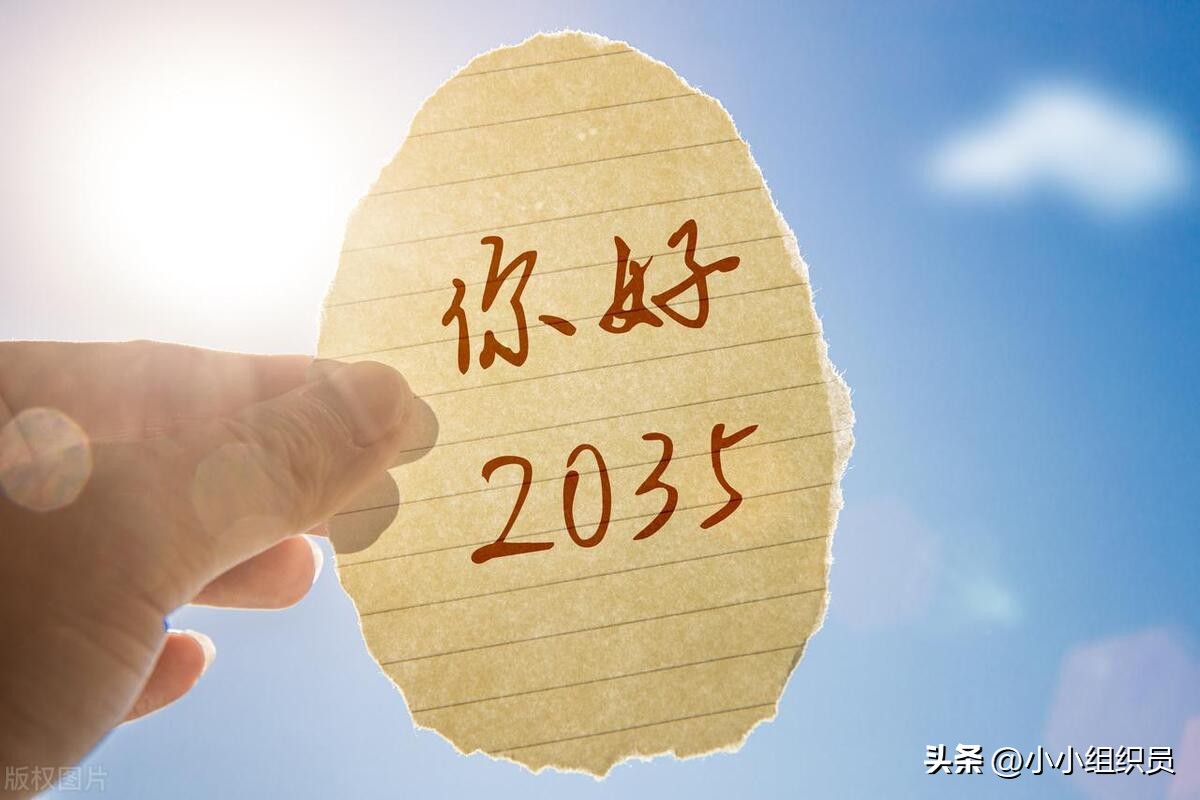 你好
2035
版权图片
头条 @小小组织员